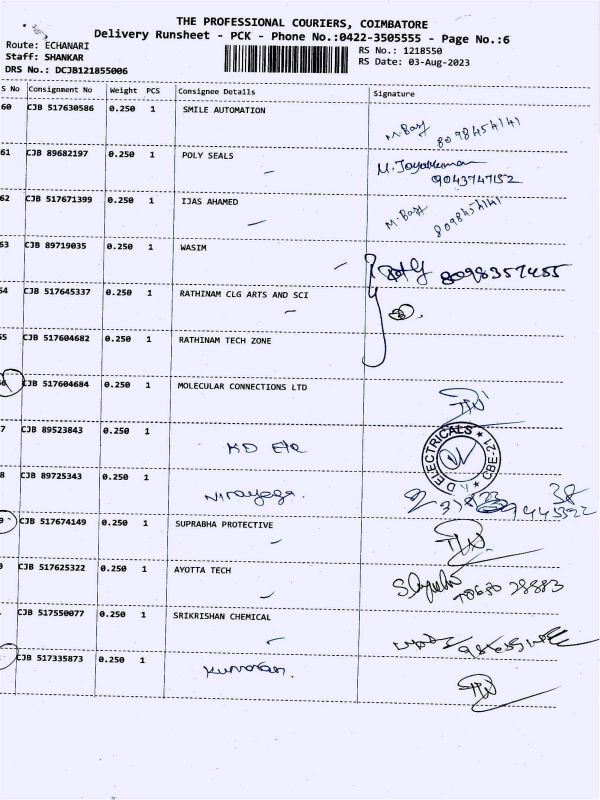 THE PROFESSIONAL COURIERS, COIMBATORE
Delivery Runsheet - PCK - Phone No.:0422-3505555 - Page No.:6
Route: ECHANARI
RS No.: 1218550
Staff: SHANKAR
RS Date: 03-Aug-2023
DRS No.: DCJB121855006
S No Consignment No Weight PCS Consignee Details Signature
60 CJB 517630586 0.250 1 SMILE AUTOMATION
8098454141
61 CJB 89682197 0.250 1 POLY SEALS
9043747152
62 CJB 517671399 0.250 1 IJAS AHAMED
8098454141
63 CJB 89719035 0.250 1 WASIM
8098357455
64 CJB 517645337 0.250 1 RATHINAM CLG ARTS AND SCI
65 CJB 517604682 0.250 1 RATHINAM TECH ZONE
CJB 517604684 0.250 1 MOLECULAR CONNECTIONS LTD
7 CJB 89523843 0.250 1 KD Ele
D ELECTRICALS ★ CBE-21
8 CJB 89725343 0.250 1
9 CJB 517674149 0.250 1 SUPRABHA PROTECTIVE
CJB 517625322 0.250 1 AYOTTA TECH
CJB 517550077 0.250 1 SRIKRISHAN CHEMICAL
CJB 517335873 0.250 1 Kumaran.